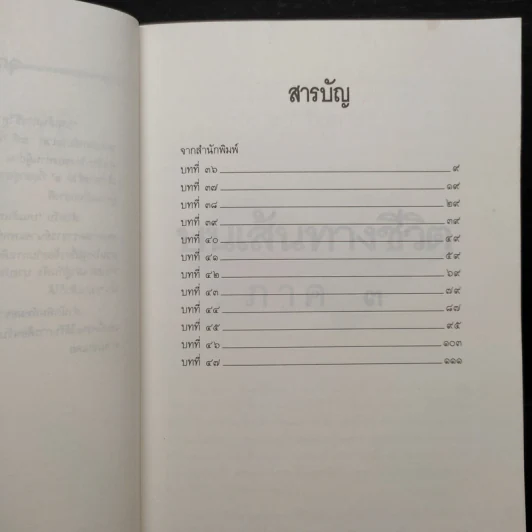 สารบัญ
จากสำนักพิมพ์
บทที่ ๓๖ ๙
บทที่ ๓๗ ๑๙
บทที่ ๓๘ ๒๙
บทที่ ๓๙ ๓๙
บทที่ ๔๐ ๔๙
บทที่ ๔๑ ๕๙
บทที่ ๔๒ ๖๙
บทที่ ๔๓ ๗๙
บทที่ ๔๔ ๘๗
บทที่ ๔๕ ๙๕
บทที่ ๔๖ ๑๐๓
บทที่ ๔๗ ๑๑๑
บนเส้นทางชีวิต
ภาค ๓